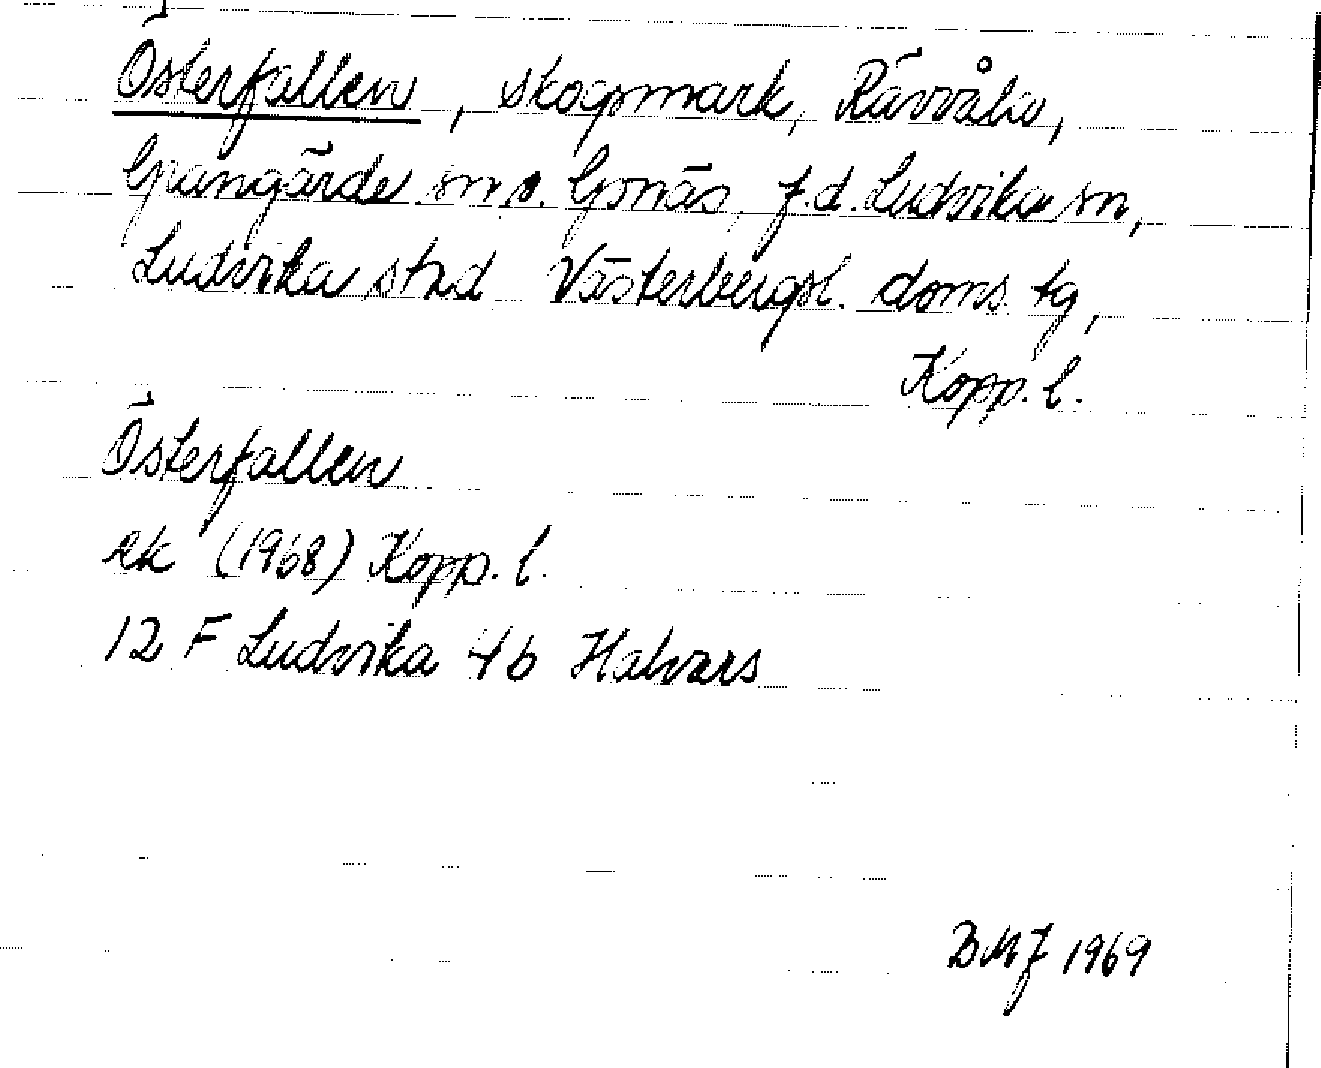 Österfallen, skogsmark, Rävvåla,
Grangärde sn o. Gonäs, f.d. Ludvika sn,
Ludvika stad Västerbergsl. doms. tg,
Kopp. l.
Österfallen
ek (1968) Kopp. l.
12 F Ludvika 4b Halvars
BMJ 1969